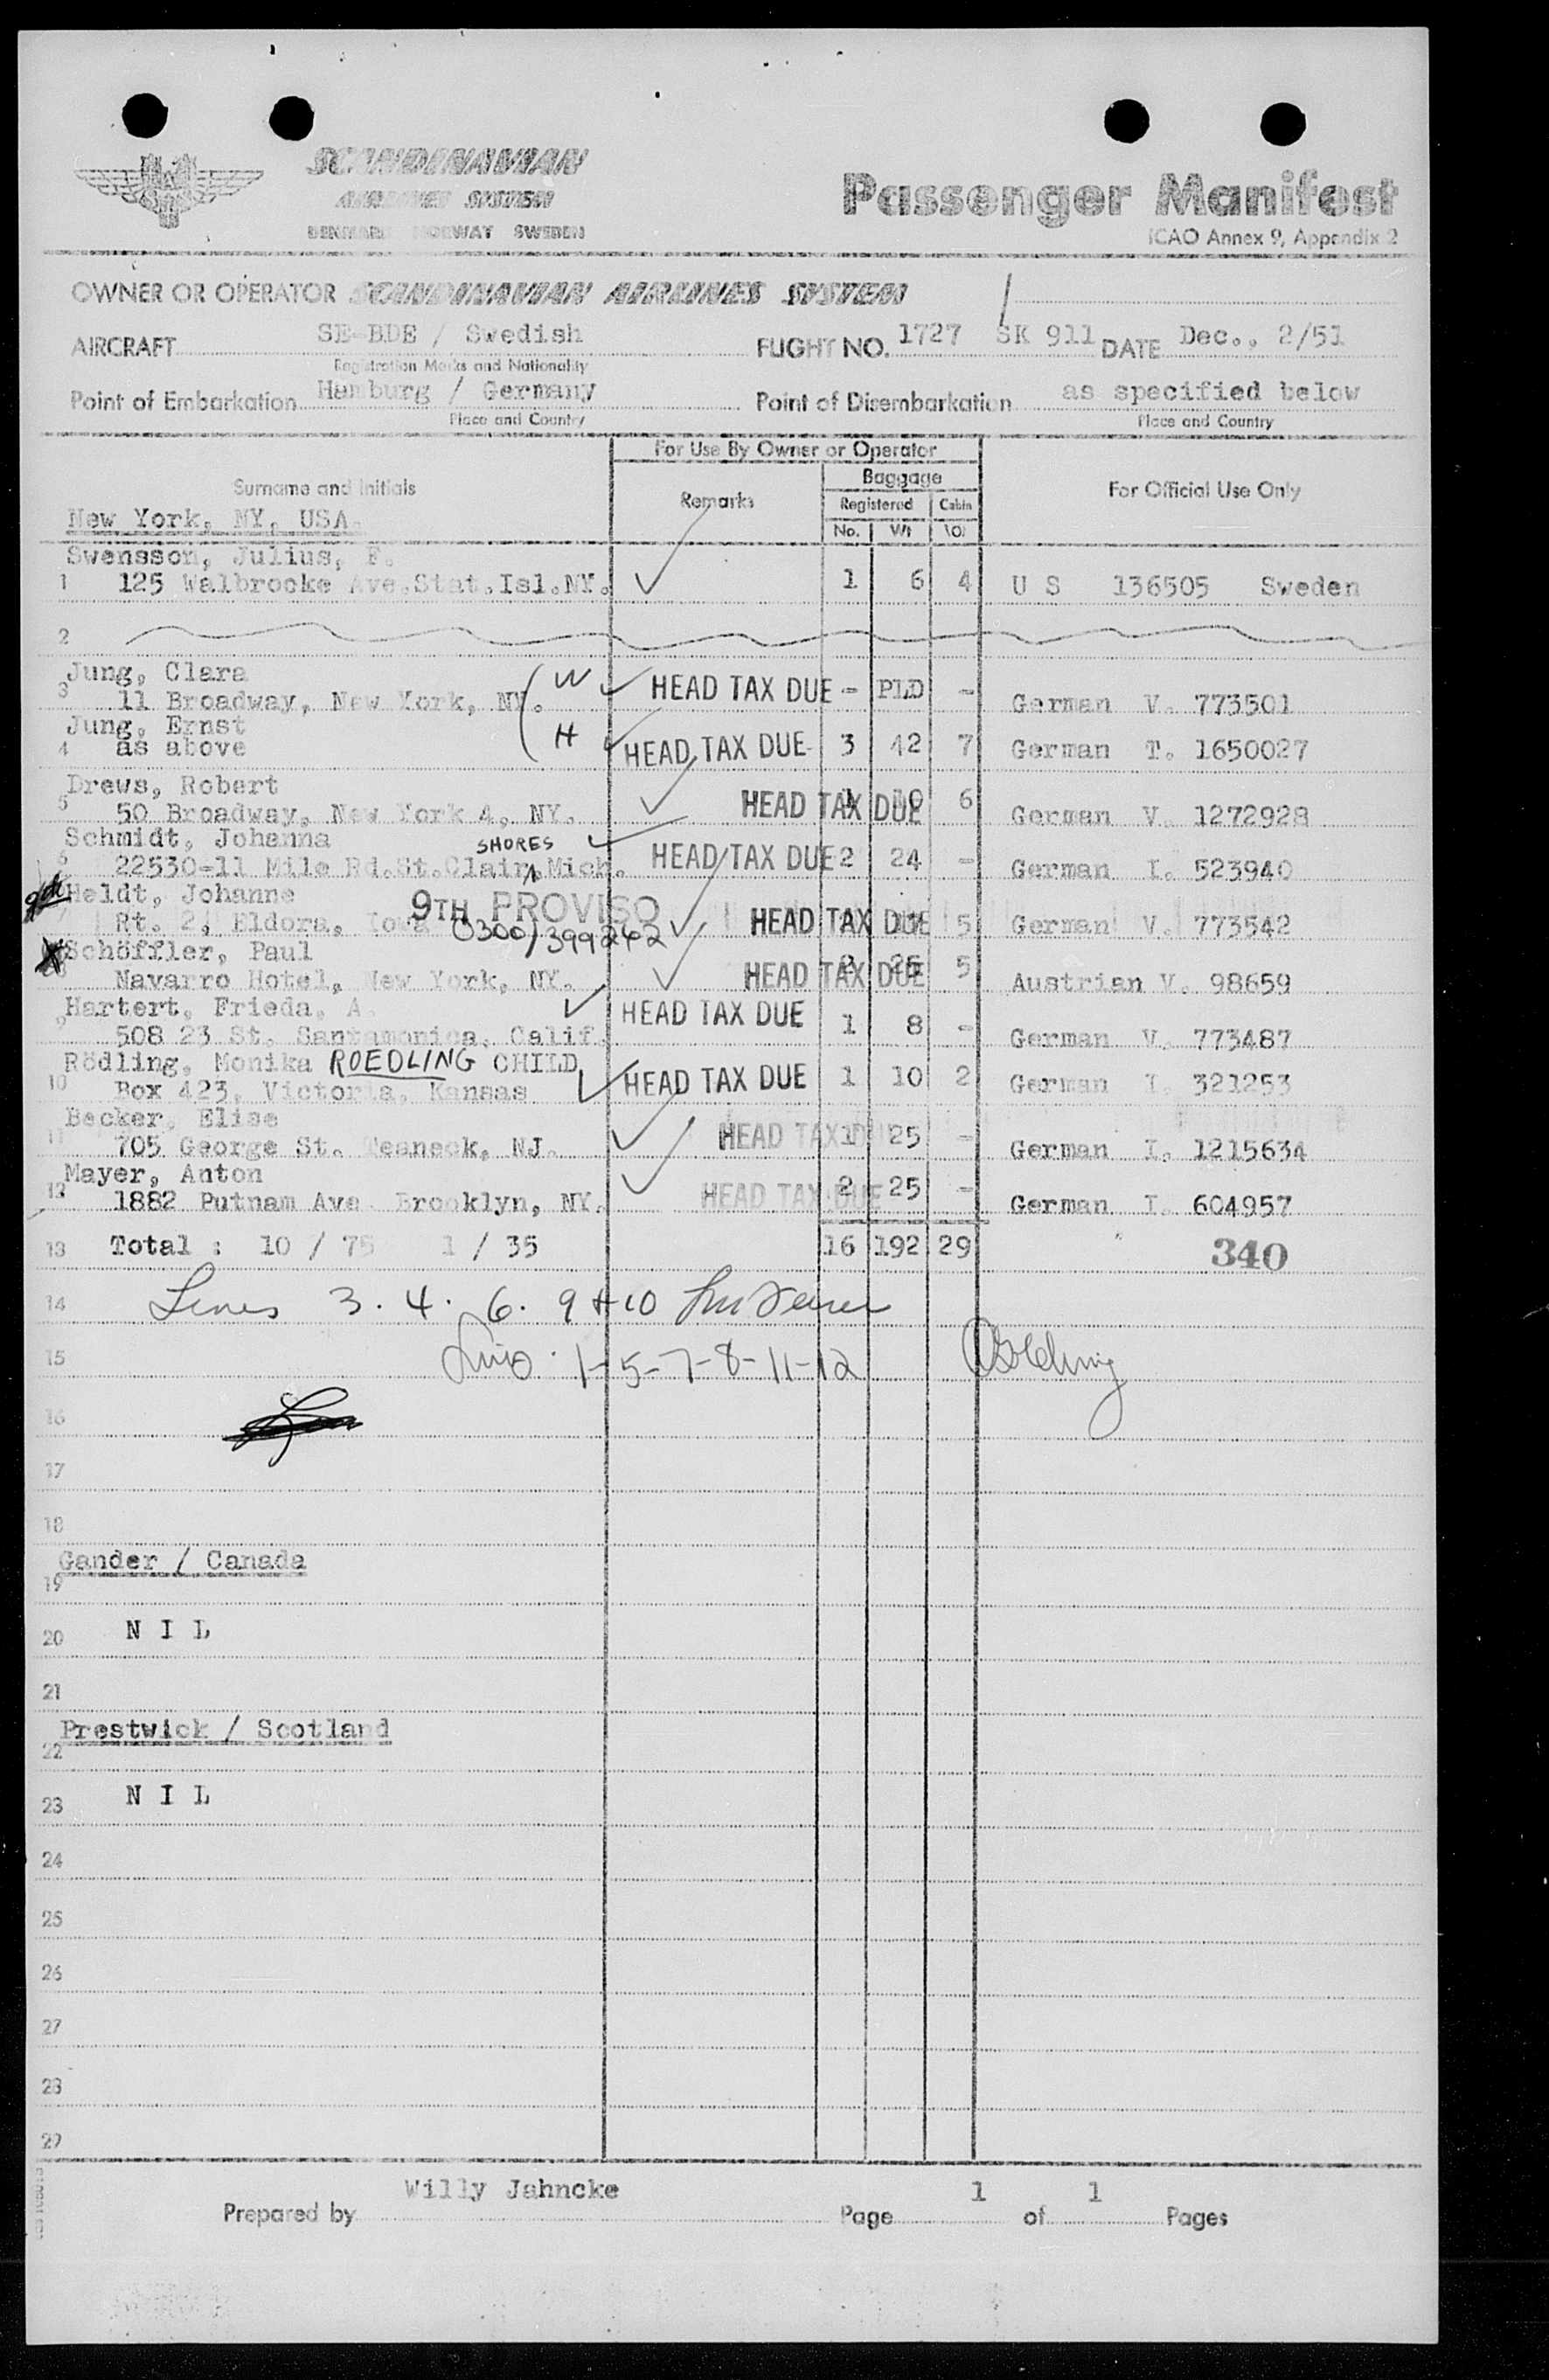 SCANDINAVIAN
AIRLINES SYSTEM
DENMARK NORWAY SWEDEN
Passenger Manifest
ICAO Annex 9, Appendix 2
OWNER OR OPERATOR SCANDINAVIAN AIRLINES SYSTEM
AIRCRAFT SE-BDE / Swedish FLIGHT NO. 1727 SK 911 DATE Dec., 2/51
Registration Marks and Nationality
Point of Embarkation Hamburg / Germany Point of Disembarkation as specified below
Place and Country Place and Country
For Use By Owner or Operator
Surname and Initials Remarks Baggage For Official Use Only
Registered Cabin
No. Wt
New York, NY, USA
Swensson, Julius, F.
1 125 Walbrooke Ave.Stat.Isl.NY. 1 6 4 U S 136505 Sweden
2
Jung, Clara
3 11 Broadway, New York, NY. W HEAD TAX DUE - PLD - German V. 773501
Jung, Ernst
4 as above H HEAD TAX DUE 3 42 7 German T. 1650027
Drews, Robert
5 50 Broadway, New York 4, NY. HEAD TAX DUE 6 German V. 1272928
Schmidt, Johanna SHORES
6 22530-11 Mile Rd.St.Clair,Mich. HEAD TAX DUE 2 24 - German I. 523940
Heldt, Johanne 9TH PROVISO
7 Rt. 2, Eldora, Iowa 0300/399242 HEAD TAX DUE 5 German V. 773542
Schöffler, Paul
Navarro Hotel, New York, NY. HEAD TAX DUE 2 25 5 Austrian V. 98659
Hartert, Frieda, A.
9 508 23 St. Santamonica, Calif. HEAD TAX DUE 1 8 - German V. 773487
Rödling, Monika ROEDLING CHILD
10 Box 423, Victoria, Kansas HEAD TAX DUE 1 10 2 German I. 321253
Becker, Elise
11 705 George St. Teaneck, NJ. HEAD TAX DUE 1 25 - German I. 1215634
Mayer, Anton
12 1882 Putnam Ave Brooklyn, NY. HEAD TAX DUE 2 25 - German I. 604957
13 Total : 10 / 75 1 / 35 16 192 29 340
14 Lines 3. 4. 6. 9 + 10
15 1-5-7-8-11-12
16
17
18
Gander / Canada
19
20 N I L
21
Prestwick / Scotland
22
23 N I L
24
25
26
27
28
29
Prepared by Willy Jahncke Page 1 of 1 Pages